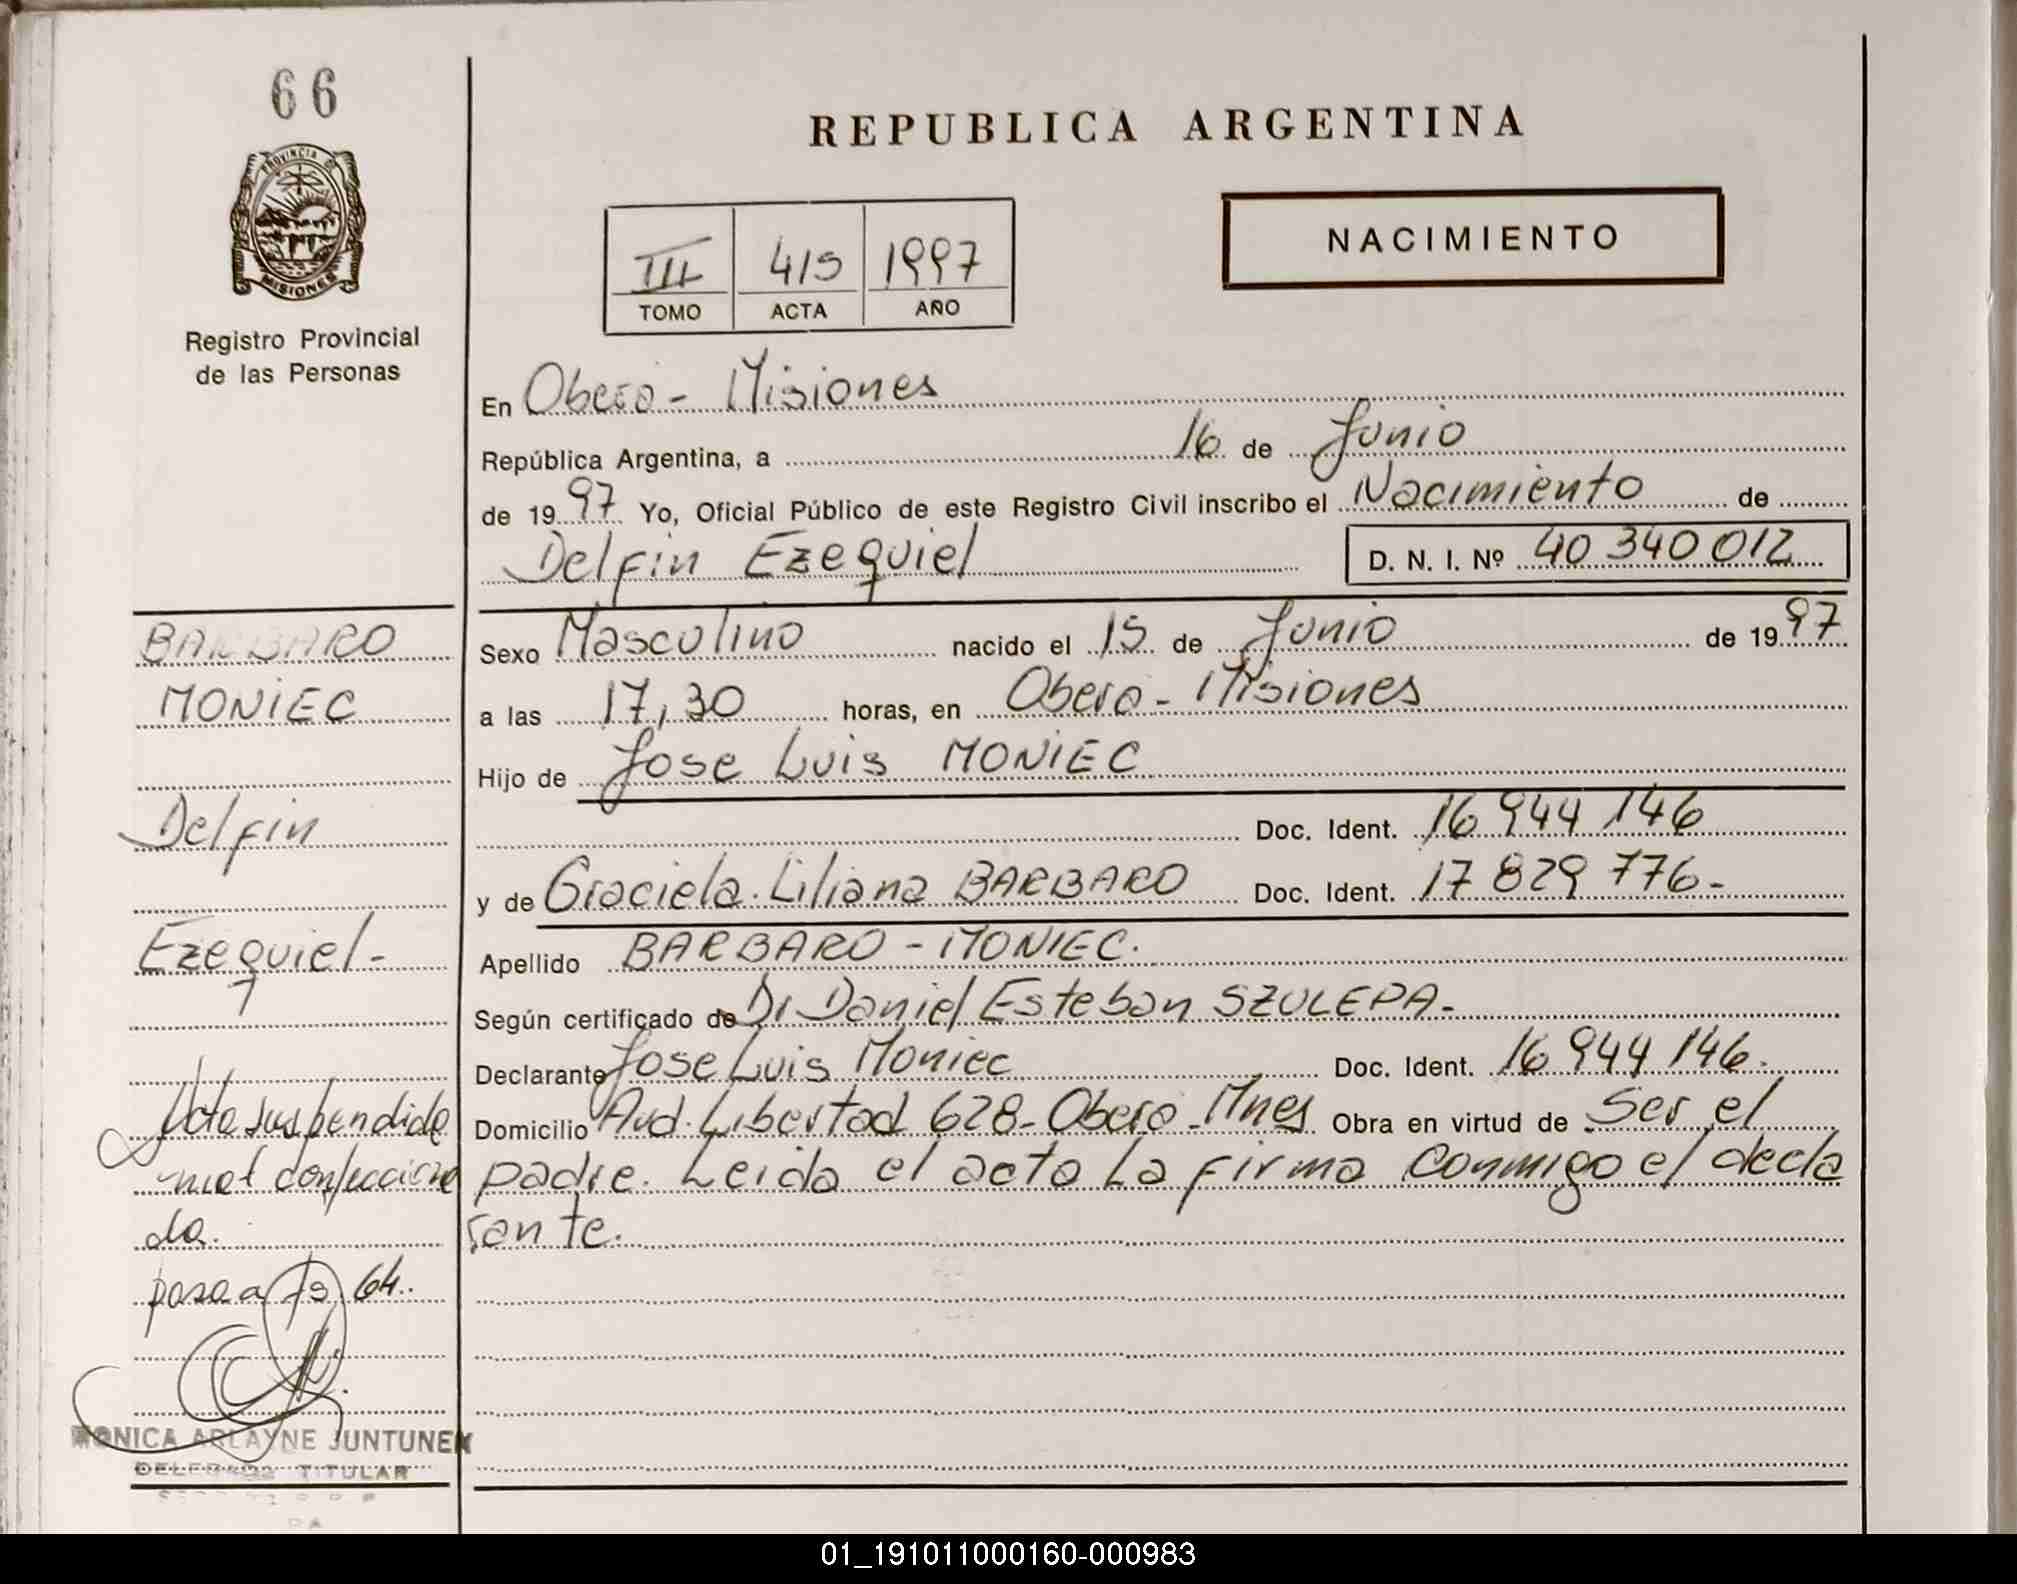 66
PROVINCIA DE
MISIONES
Registro Provincial
de las Personas
REPUBLICA ARGENTINA
NACIMIENTO
III 415 1997
TOMO ACTA AÑO
En Obera - Misiones
República Argentina, a 16 de Junio
de 1997 Yo, Oficial Público de este Registro Civil inscribo el Nacimiento de
Delfin Ezequiel D. N. I. Nº 40 340 012
Sexo Masculino nacido el 15 de Junio de 1997
a las 17,30 horas, en Obera - Misiones
Hijo de Jose Luis MONIEC
Doc. Ident. 16 944 146
y de Graciela Liliana BARBARO Doc. Ident. 17 829 776-
Apellido BARBARO - MONIEC.
Según certificado de Dr Daniel Esteban SZULEPA-
Declarante Jose Luis Moniec Doc. Ident. 16 944 146.
Domicilio Avd. Libertad 628- Obera - Mnes Obra en virtud de Ser el
padre. Leida el acta La firma conmigo el decla
rante.
BARBARO
MONIEC
Delfin
Ezequiel-
Acta suspendida
mal confecciona
da.
pasa a Fs 64.
MONICA ARLAYNE JUNTUNEN
DELEGADA TITULAR
01_191011000160-000983